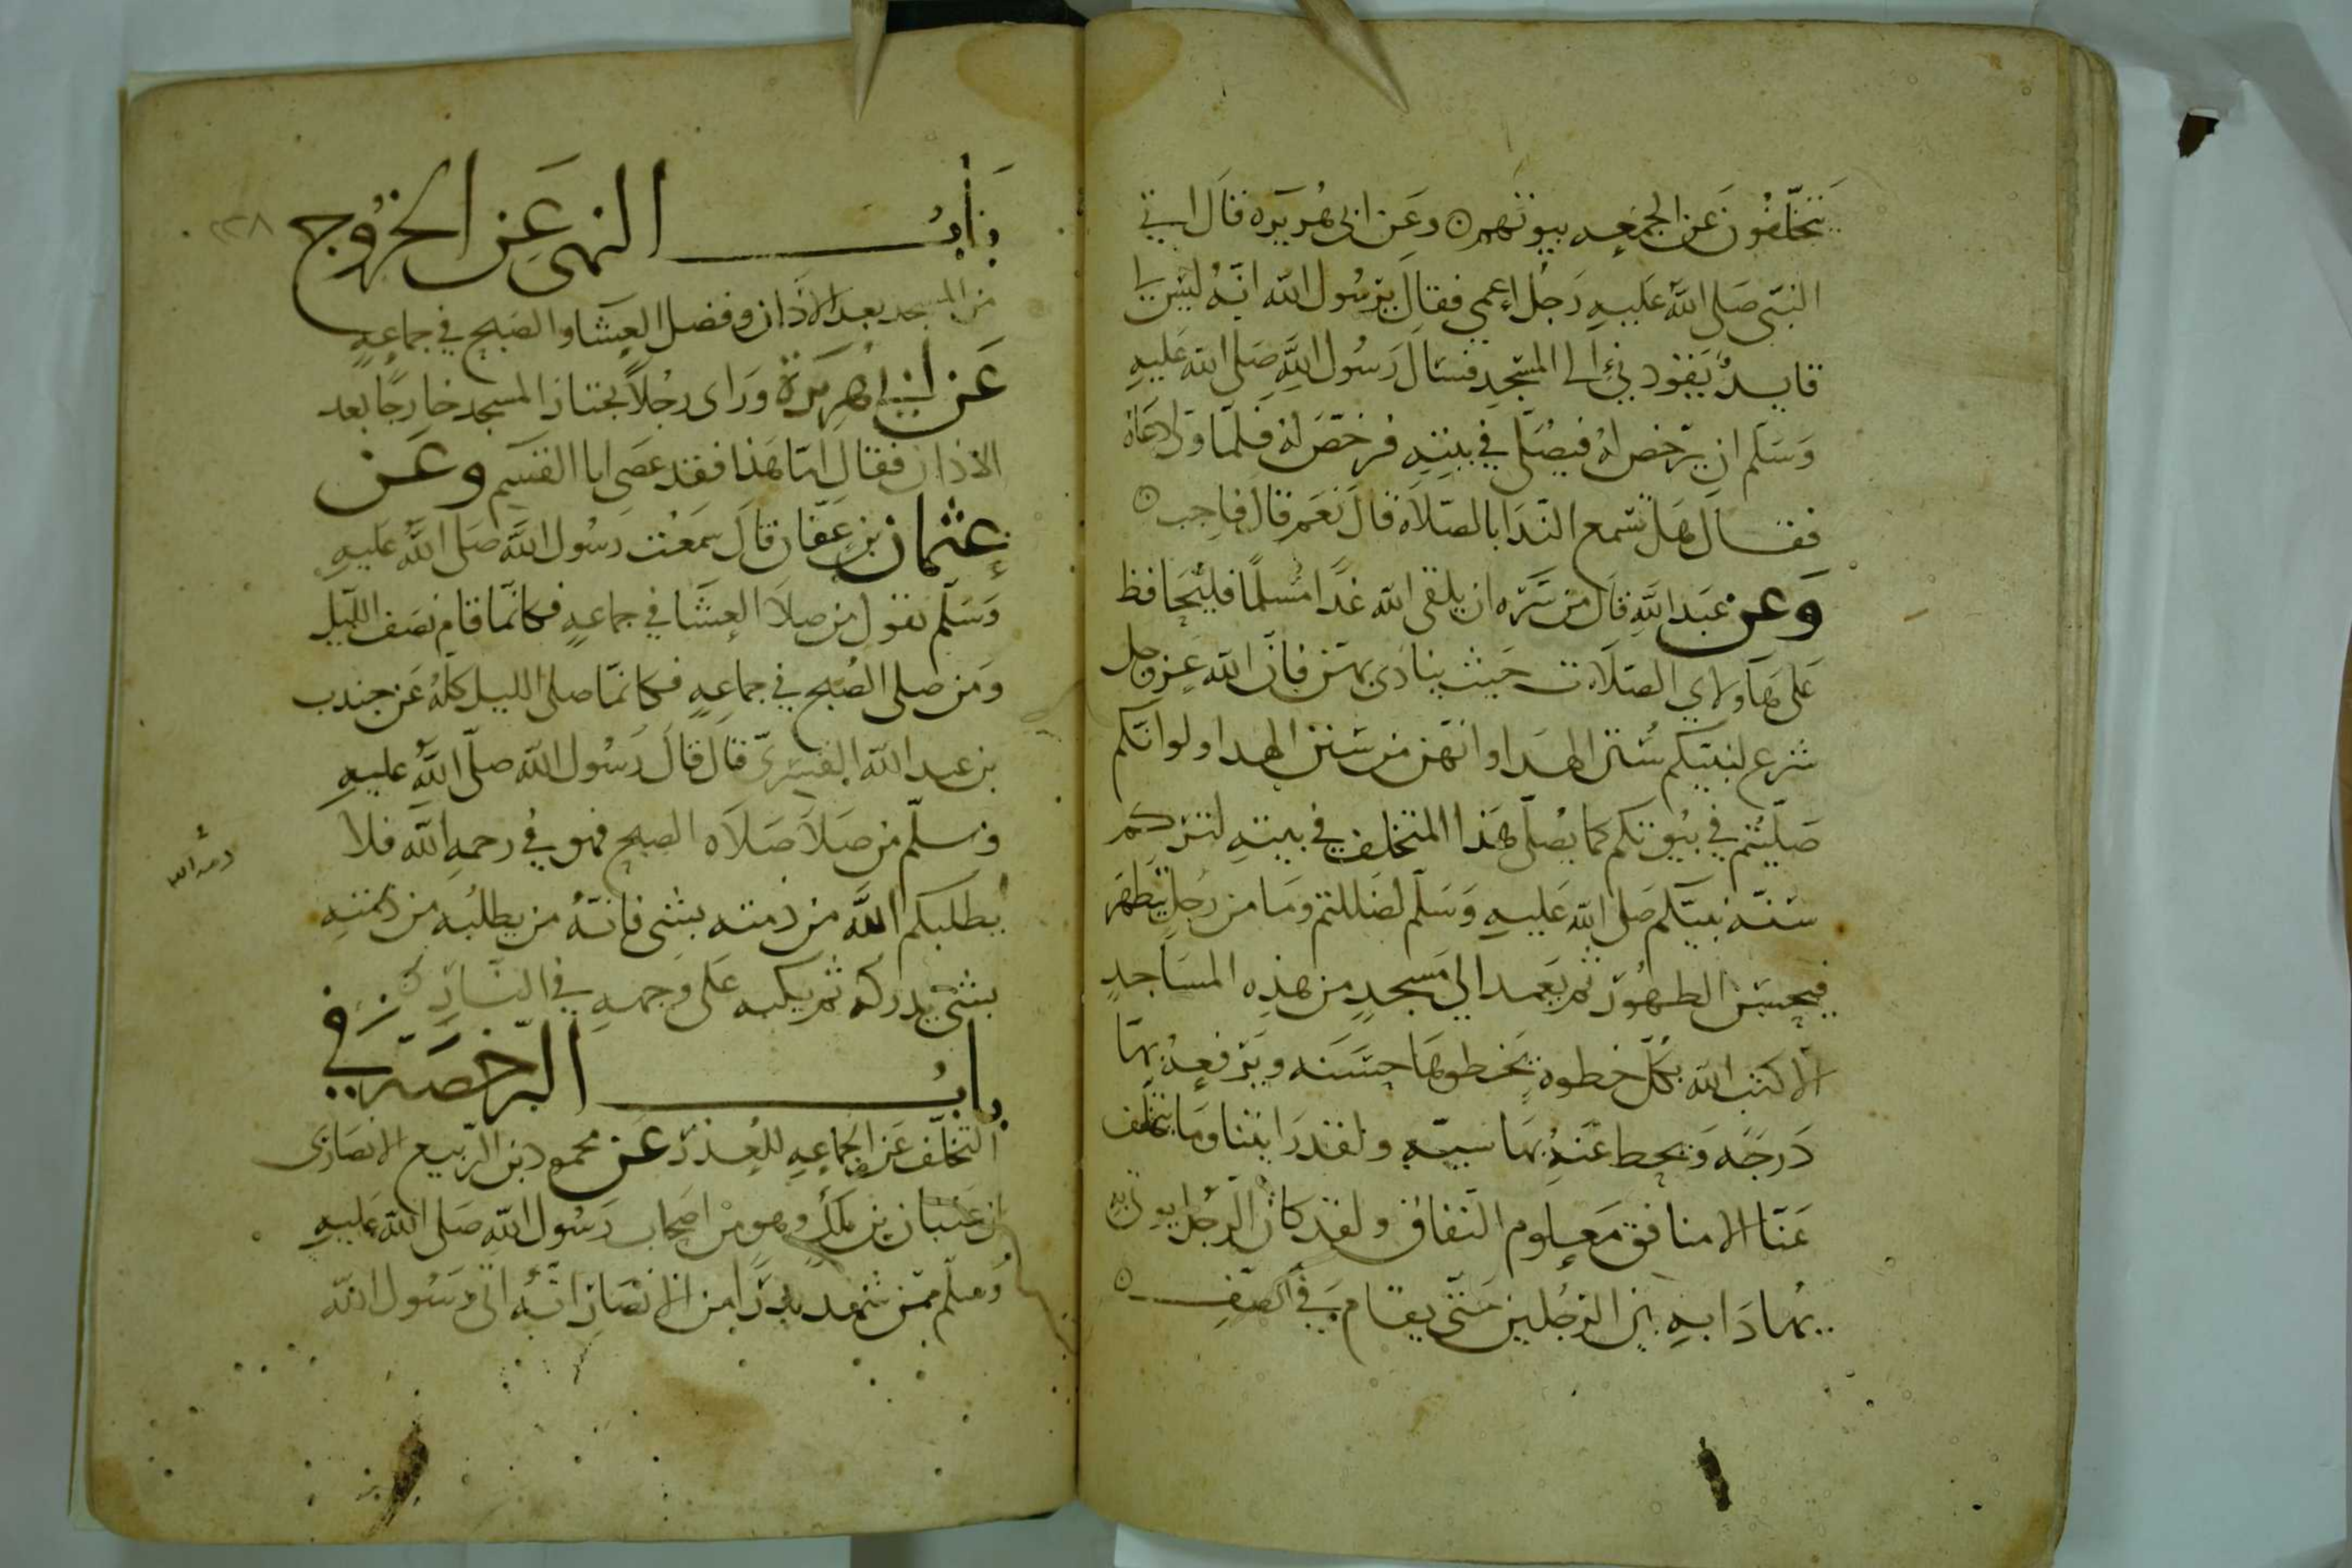 يتخلفون عن الجمعه بيوتهم ٥ وعن ابى هريره قال اتى
النبى صلى الله عليه رجل اعمى فقال يرسول الله انه ليس لى
قايد يقودنى الى المسجد فسال رسول الله صلى الله عليه
وسلم ان يرخص له فيصلى في بيته فرخص له فلما ولى دعاه
فقال هل تسمع الندا بالصلاه قال نعم قال فاجب ٥
وعن عبد الله قال من سره ان يلقى الله غدا مسلما فليحافظ
على هاولاي الصلاه ت حيث ينادى بهن فان الله عز وجل
شرع لنبيكم سنن الهدا وانهن من سنن الهدا ولو انكم
صليتم في بيوتكم كما يصلى هذا المتخلف في بيته لتركتم
سنه نبيكم صلى الله عليه وسلم لضللتم وما من رجل يتطهر
فيحسن الطهور ثم يعمد الى مسجد من هذه المساجد
الا كتب الله بكل خطوة يخطوها حسنه ويرفعه بها
درجه ويحط عنه بها سيئه ولقد رايتنا وما يتخلف
عنا الا منافق معلوم النفاق ولقد كان الرجل يوتى به
يهادا به بين الرجلين حتى يقام في الصف ٥
باب النهى عن الخروج
٢٢٨
من المسجد بعد الاذان وفضل العشا والصبح في جماعه
عن ابى هريرة وراى رجلا يجتاز المسجد خارجا بعد
الاذان فقال اما هذا فقد عصى ابا القسم وعن
عثمان بن عفان قال سمعت رسول الله صلى الله عليه
وسلم يقول من صلا العشا في جماعه فكانما قام نصف الليل
ومن صلى الصبح في جماعه فكانما صلى الليل كله عن جندب
بن عبد الله القسرى قال قال رسول الله صلى الله عليه
وسلم من صلا صلاه الصبح فهو في رحمه الله فلا
ذمه الله
يطلبكم الله من ذمته بشى فانه من يطلبه من ذمته
بشى يدركه ثم يكبه على وجهه في النار
باب الرخصه في
التخلف عن الجماعه للعذر عن محمود بن الربيع الانصارى
ان عتبان بن ملك وهو من اصحاب رسول الله صلى الله عليه
وسلم ممن شهد بدرا من الانصار انه اتى رسول الله